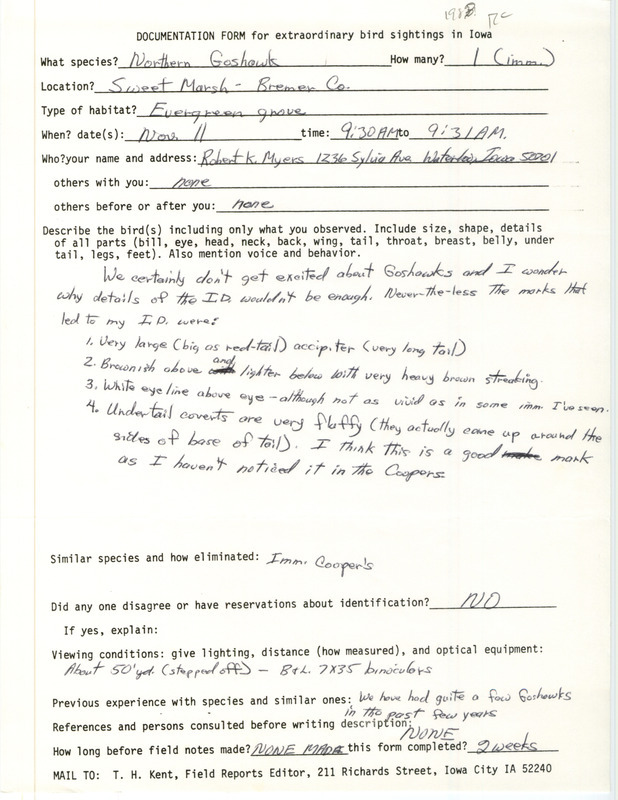 DOCUMENTATION FORM for extraordinary bird sightings in Iowa
What species? Northern Goshawk How many? 1 (imm.)
Location? Sweet Marsh - Bremer Co.
Type of habitat? Evergreen grove
When? date(s): Nov. 11 time: 9:30 AM to 9:31 A.M.
Who? your name and address: Robert K. Myers 1236 Sylvia Ave. Waterloo, Iowa 50701
others with you: none
others before or after you: none
Describe the bird(s) including only what you observed. Include size, shape, details
of all parts (bill, eye, head, neck, back, wing, tail, throat, breast, belly, under
tail, legs, feet). Also mention voice and behavior.
We certainly don't get excited about Goshawks and I wonder
why details of the I.D. wouldn't be enough. Never-the-less The marks that
led to my I.D. were:
1. Very large (big as red-tail) accipiter (very long tail)
2. Brownish above and lighter below with very heavy brown streaking.
3. White eye line above eye - although not as vivid as in some imm. I've seen.
4. Undertail coverts are very fluffy (they actually came up around the
sides of base of tail). I think this is a good mark
as I haven't noticed it in the Coopers
Similar species and how eliminated: Imm. Cooper's
Did any one disagree or have reservations about identification? NO
If yes, explain:
Viewing conditions: give lighting, distance (how measured), and optical equipment:
About 50 yd. (stepped off) - B&L. 7X35 binoculars
Previous experience with species and similar ones: We have had quite a few Goshawks
in the past few years
References and persons consulted before writing description: NONE
How long before field notes made? NONE MADE this form completed? 2 weeks
MAIL TO: T. H. Kent, Field Reports Editor, 211 Richards Street, Iowa City IA 52240